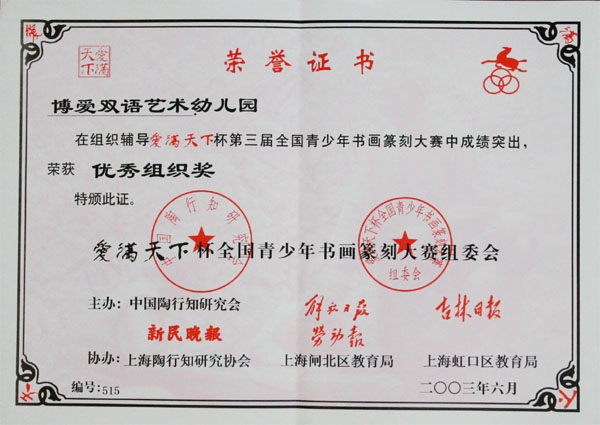 爱满
天下
荣誉证书
博爱双语艺术幼儿园
在组织辅导爱满天下杯第三届全国青少年书画篆刻大赛中成绩突出，
荣获 优秀组织奖
特颁此证。
中国陶行知研究会
爱满天下杯全国青少年书画篆刻大赛
组委会
爱满天下杯全国青少年书画篆刻大赛组委会
主办：中国陶行知研究会 解放日报 吉林日报
新民晚报 劳动报
协办：上海陶行知研究协会 上海闸北区教育局 上海虹口区教育局
编号：515 二〇〇三年六月